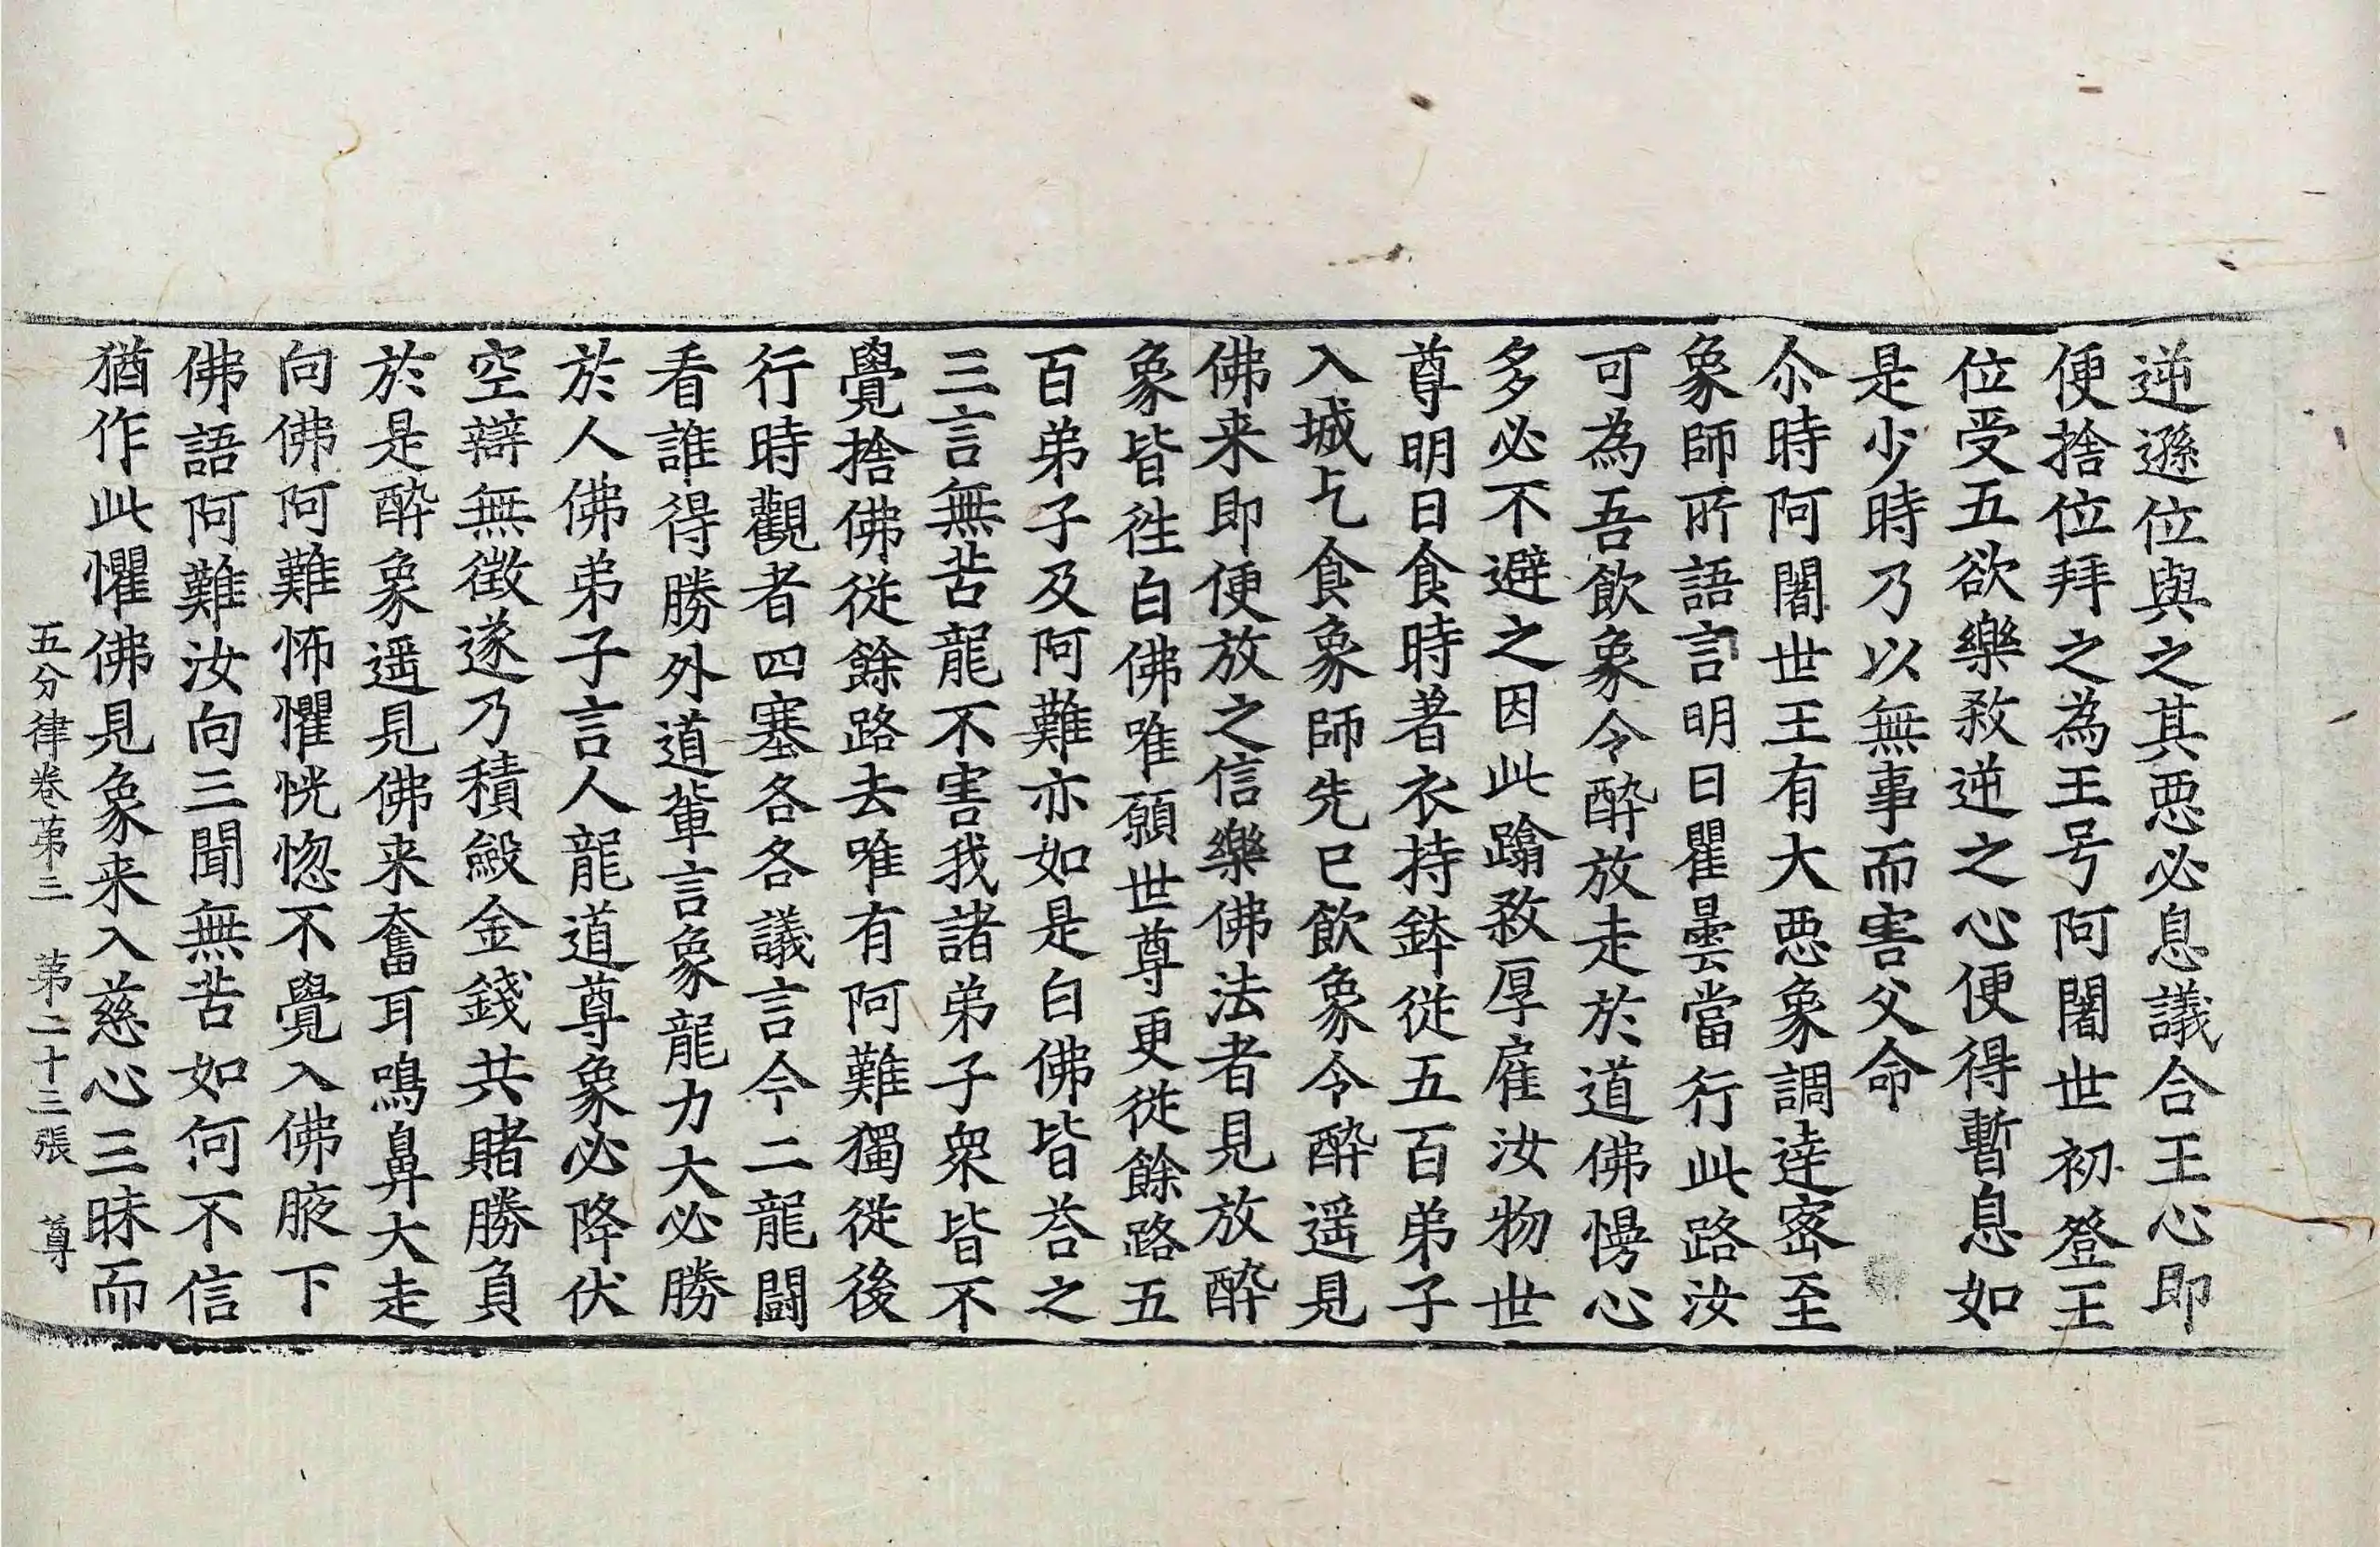 逆遜位與之其惡必息議合王心即
便捨位拜之為王号阿闍世初登王
位受五欲樂敎逆之心便得暫息如
是少時乃以無事而害父命
尒時阿闍世王有大惡象調達密至
象師所語言明日瞿曇當行此路汝
可為吾飲象令醉放走於道佛慢心
多必不避之因此蹹敎厚雇汝物世
尊明日食時著衣持鉢從五百弟子
入城乞食象師先已飲象令醉遥見
佛来即便放之信樂佛法者見放醉
象皆徃白佛唯願世尊更從餘路五
百弟子及阿難亦如是白佛皆荅之
三言無苦龍不害我諸弟子衆皆不
覺捨佛從餘路去唯有阿難獨從後
行時觀者四塞各各議言今二龍鬪
看誰得勝外道輩言象龍力大必勝
於人佛弟子言人龍道尊象必降伏
空辯無徵遂乃積斂金錢共賭勝負
於是醉象遥見佛来奮耳鳴鼻大走
向佛阿難怖懼恍惚不覺入佛腋下
佛語阿難汝向三聞無苦如何不信
猶作此懼佛見象来入慈心三昧而
五分律卷苐三 苐二十三張 尊